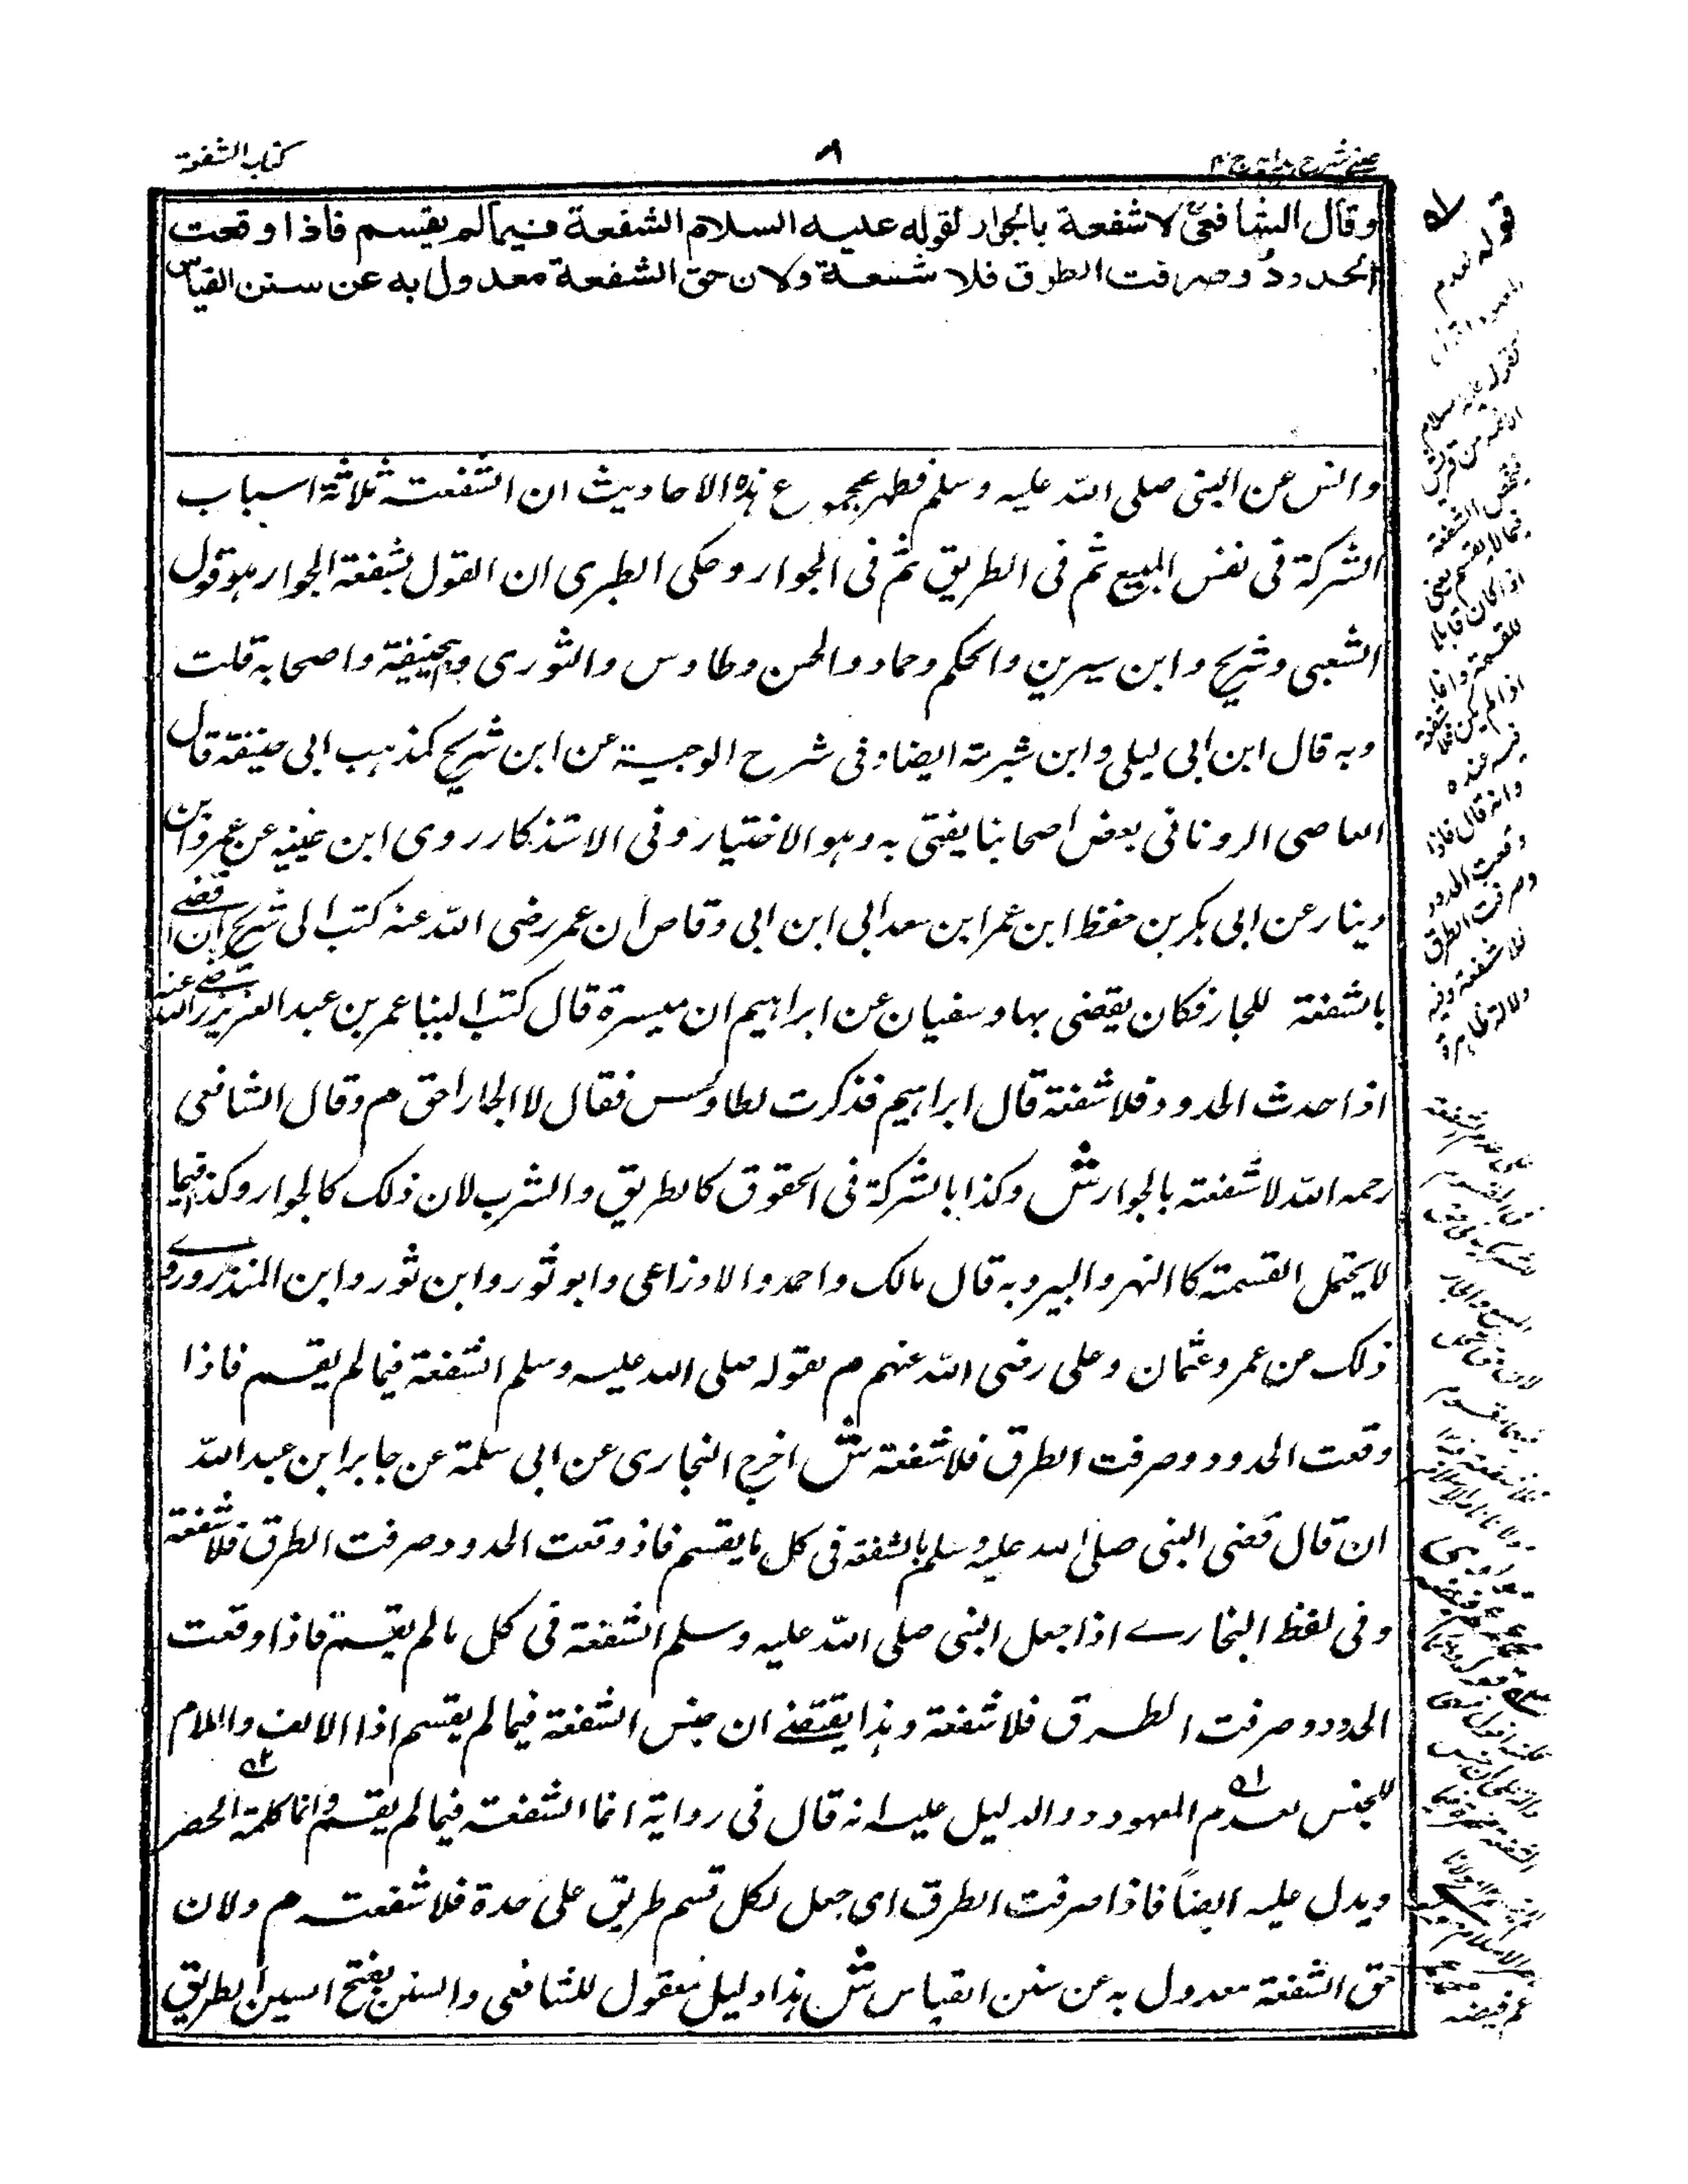 عینی شرح هدایة ج ۴
۸
کتاب الشفعة
وقال الشافعیؒ لا شفعة بالجوار لقوله علیه السلام الشفعة فیما لم یقسم فاذا وقعت
الحدود وصرفت الطرق فلا شفعة ولان حق الشفعة معدول به عن سنن القیاس
وانس عن النبی صلی الله علیه وسلم فظهر بمجموع هذه الاحادیث ان الشفعة ثلاثة اسباب
الشرکة فی نفس المبیع ثم فی الطریق ثم فی الجوار وحکی الطبری ان القول بشفعة الجوار هو قول
الشعبی وشریح وابن سیرین والحکم وحماد والحسن وطاوس والثوری وابیحنیفة واصحابه قلت
وبه قال ابن ابی لیلی وابن شبرمة ایضا وفی شرح الوجیز عن ابن شریح کمذهب ابی حنیفة قال
القاضی الرونانی بعض اصحابنا یفتی به وهو الاختیار وفی الاستذکار روی ابن عینیه عن عمرو ابن
دینار عن ابی بکر بن حفظ ابن عمر ابن سعد ابی ابن ابی وقاص ان عمر رضی الله عنه کتب الی شریح ان اقضے
بالشفعة للجار فکان یقضی بها وسفیان عن ابراهیم ان میسرة قال کتب الینا عمر بن عبد العزیز رضے الله عنه
اذا حدث الحدود فلا شفعة قال ابراهیم فذکرت لطاوس فقال لا الجار احق م وقال الشافعی
رحمه الله لا شفعة بالجوار ش وکذا بالشرکة فی الحقوق کالطریق والشرب لان ذلک کالجوار وکذا فیما
لا یحتمل القسمة کالنهر والبیر وبه قال مالک واحمد والاوزاعی وابو ثور وابن ثور وابن المنذر وروے
ذلک عن عمر وعثمان وعلی رضی الله عنهم م بقوله صلی الله علیه وسلم الشفعة فیما لم یقسم فاذا
وقعت الحدود وصرفت الطرق فلا شفعة ش اخرج البخاری عن ابی سلمة عن جابر ابن عبد الله
ان قال قضی النبی صلی الله علیه وسلم بالشفعة فی کل ما یقسم فاذ وقعت الحدود صرفت الطرق فلا شفعة
وفی لفظ البخارے اذا جعل النبی صلی الله علیه وسلم الشفعة فی کل مالم یقسم فاذا وقعت
الحدود وصرفت الطرق فلا شفعة وهذا یقتضے ان جنس الشفعة فیما لم یقسم اذا الالف واللام
للجنس لعدم المعهود والدلیل علیه انه قال فی روایة انما الشفعة فیما لم یقسم وانما کلمة الحصر
ویدل علیه ایضاً فاذا صرفت الطرق ای جعل لکل قسم طریق علی حدة فلا شفعة م ولان
حق الشفعة معدول به عن سنن القیاس ش هذا دلیل معقول للشافعی والسنن بفتح السین الطریق
قوله لعدم
لقوله علیه السلام
الائمة من قریش
فیخص الشفعة
فیما لا یقسم یعنی
اذا کان قابلا
للقسمة واما
اذا لم یکن فلا شفعة
فیه عنده
وانه قال فاذا
وقعت الحدود
وصرفت الطرق
فلا شفعة وفیه
دلالة ظاهرة